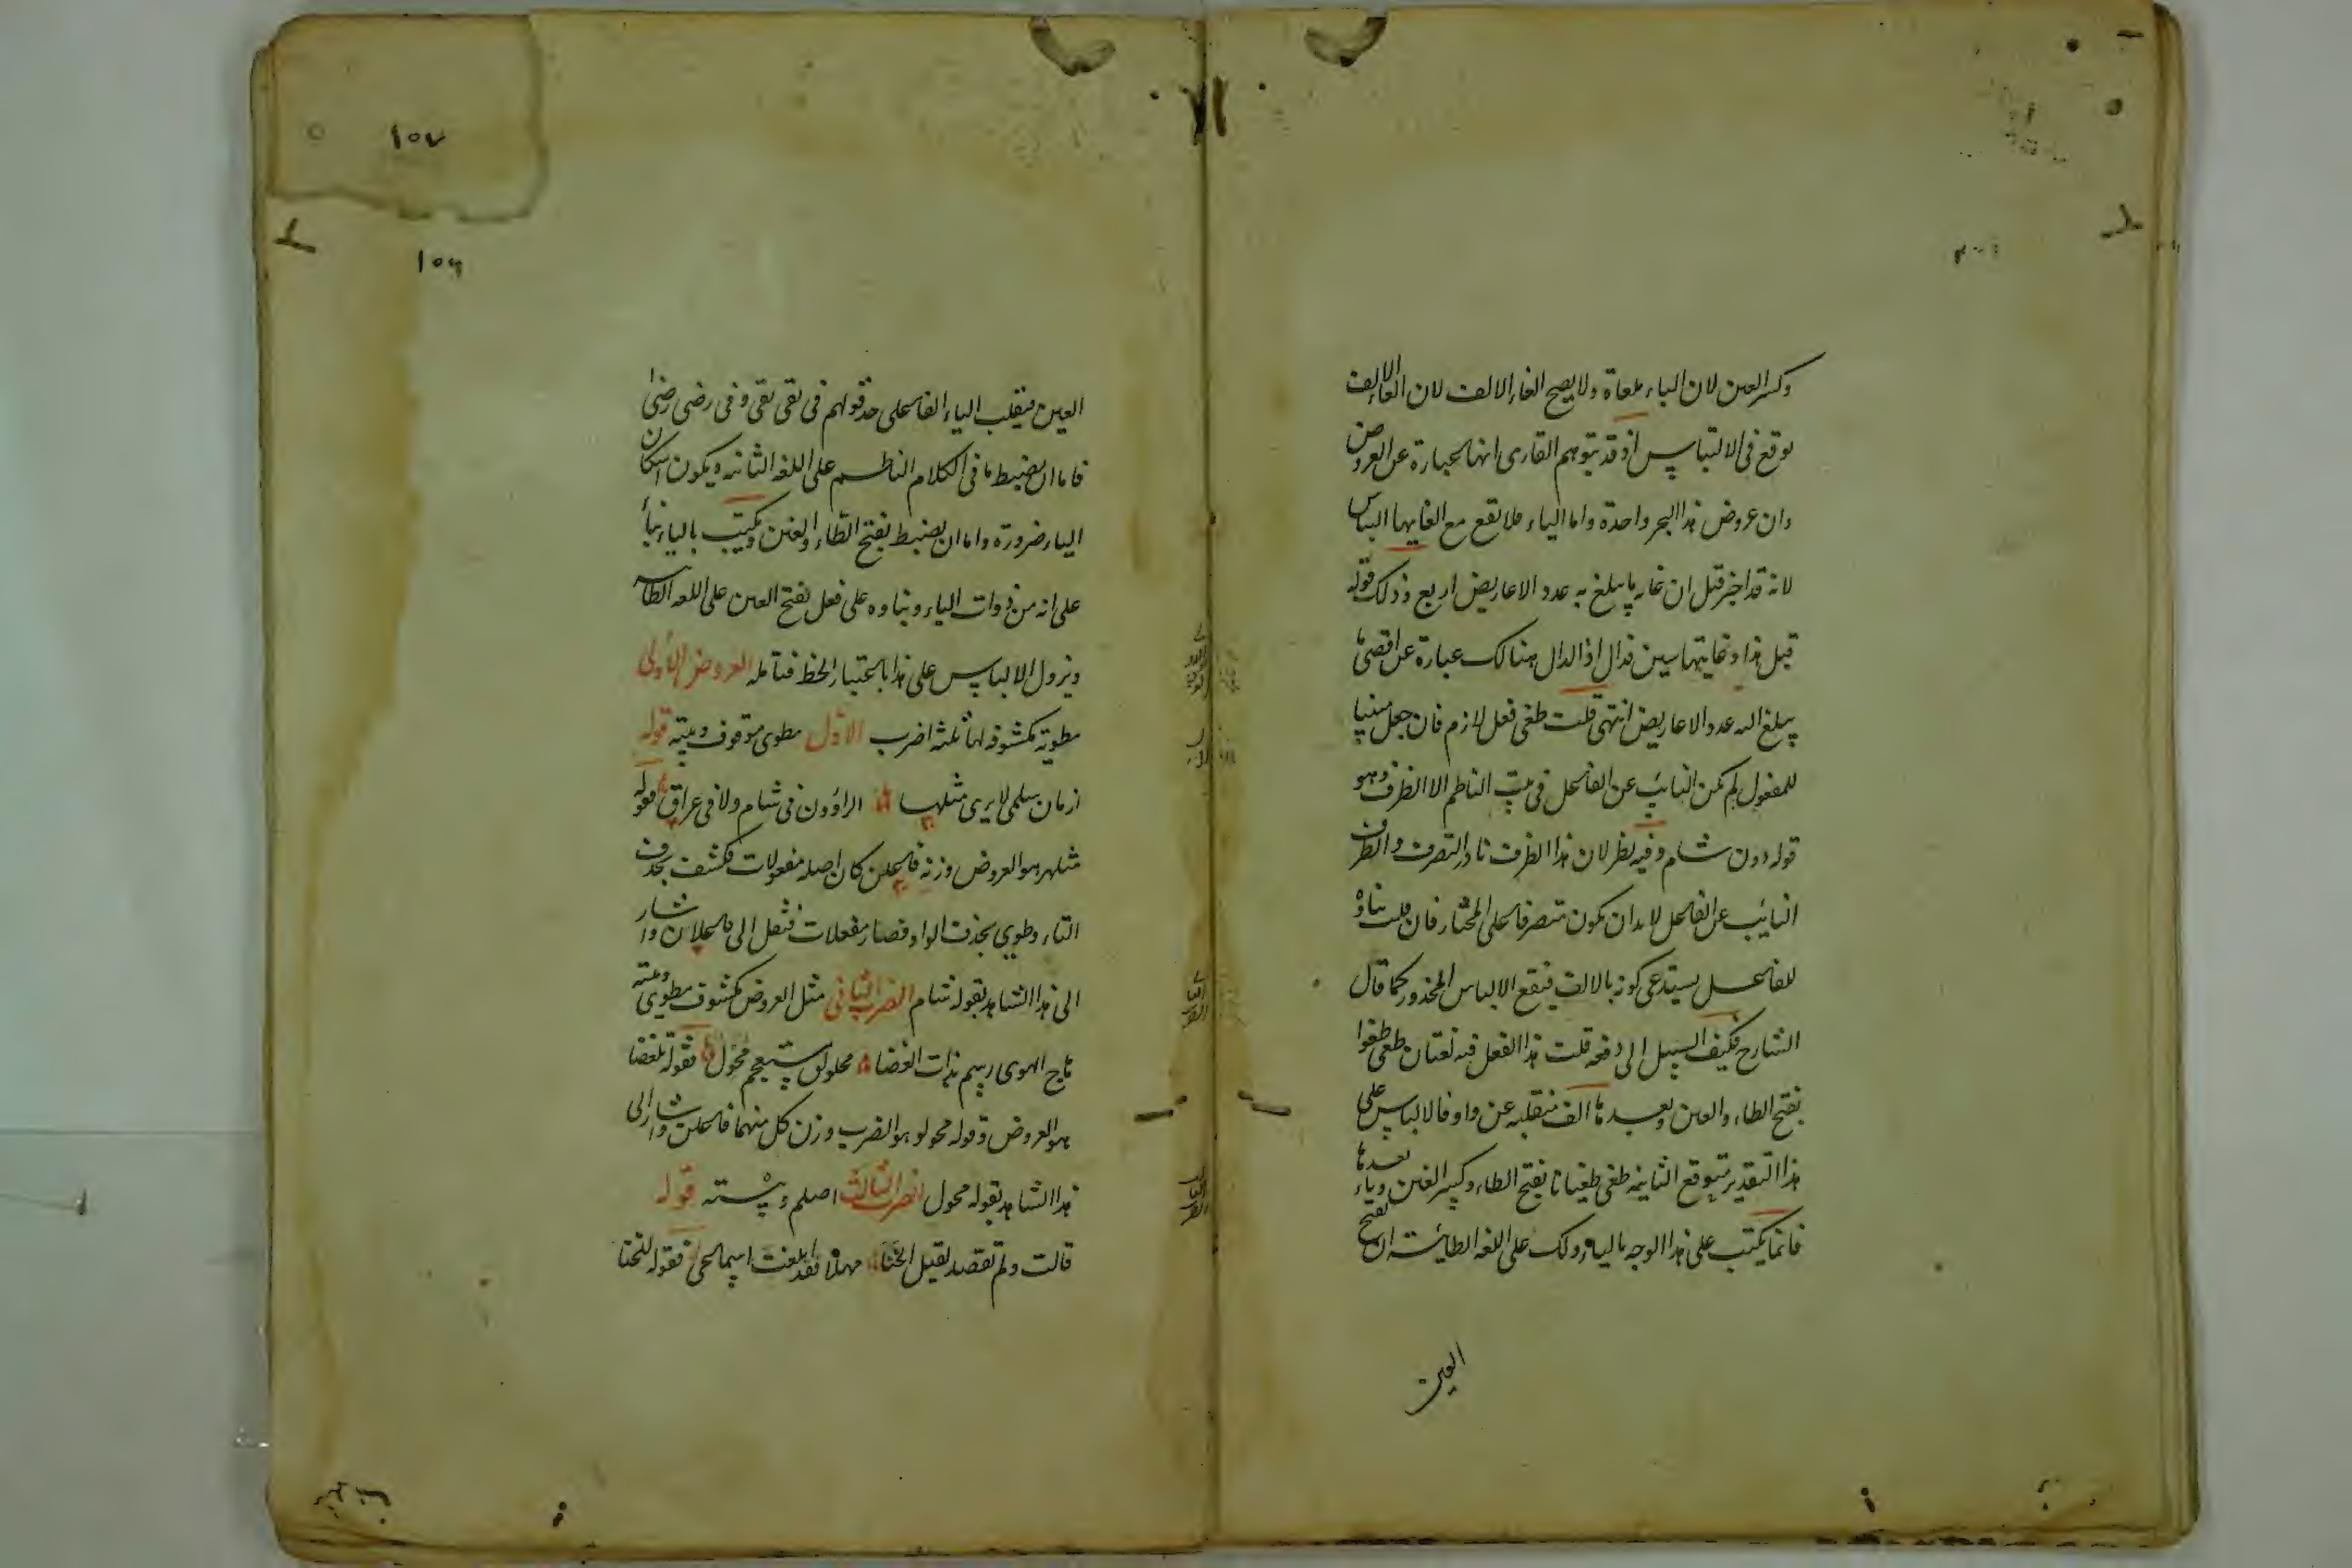 وكسر العين لان الياء ملغاة ولا يصح الغاء الالف لان الغاء الالف
يوقع فى الالتباس اذ قد يتوهم القارى انها عبارة عن العروض
وان عروض هذا البحر واحدة واما الياء فلا يقع مع الغايها التباس
لانه قد اخبر قبل ان غاية ما يبلغ به عدد الاعاريض اربع وذلك قوله
قبل هذا وغايتها سين فدال اذ الدال هنالك عبارة عن اقصى ما
يبلغ اليه عدد الاعاريض انتهى قلت طغى فعل لازم فان جعل مبنيا
للمفعول لم يكن النايب عن الفاعل فى بيت الناظم الا الظرف وهو
قوله دون شام وفيه نظر لان هذا الظرف نادر التصرف والظرف
النايب عن الفاعل لا بد ان يكون متصرفا على المختار فان قلت بناؤه
للفاعل يستدعى كونه بالالف فيقع الالباس المحذور كما قال
الشارح فكيف السبيل الى دفعه قلت هذا الفعل فيه لغتان طغى طغوا
بفتح الطاء والعين وبعدها الف منقلبه عن واو فالالباس على
هذا التقدير متوقع الثانيه طغى طغيانا بفتح الطاء وكسر الغين وياء بعدها
فانما يكتب على هذا الوجه بالياء ولك على اللغه الطائية ان تفتح
العين
١٥٧
١٥٦
العين فيقلب الياء الفا على حد قولهم فى بقى بقى وفى رضى رضى
فاما ان يضبط ما فى الكلام الناظم على اللغه الثانيه ويكون اسكان
الياء ضرورة واما ان يضبط بفتح الطاء والغين ويكتب بالياء بناء
على انه من ذوات الياء وبناوه على فعل بفتح العين على اللغه الطائيه
ويزول الالباس على هذا باعتبار الخط فتامله العروض الاولى
مطويه مكشوفه لها ثلثه اضرب الاول مطوى موقوف وبيته قوله
ازمان سلمى لا يرى مثلها الراؤون فى شام ولا فى عراق فقوله
مثلها هو العروض وزنه فاعلن كان اصله مفعولات فكشف بحذف
التاء وطوي بحذف الواو فصار مفعلات فنقل الى فاعلان واشار
الى هذا الشاهد بقوله شام الضرب الثانى مثل العروض مكشوف مطوى وبيته
هاج الهوى رسم بذات الغضا مخلولق مستعجم محول فقوله بلغضا
هو العروض وقوله محولو هو الضرب وزن كل منهما فاعلن واشار الى
هذا الشاهد بقوله محول الضرب الثالث اصلم وبيته قوله
قالت ولم تقصد لقيل الخنا مهلا فقد ابلغت اسماعى فقوله للخنا